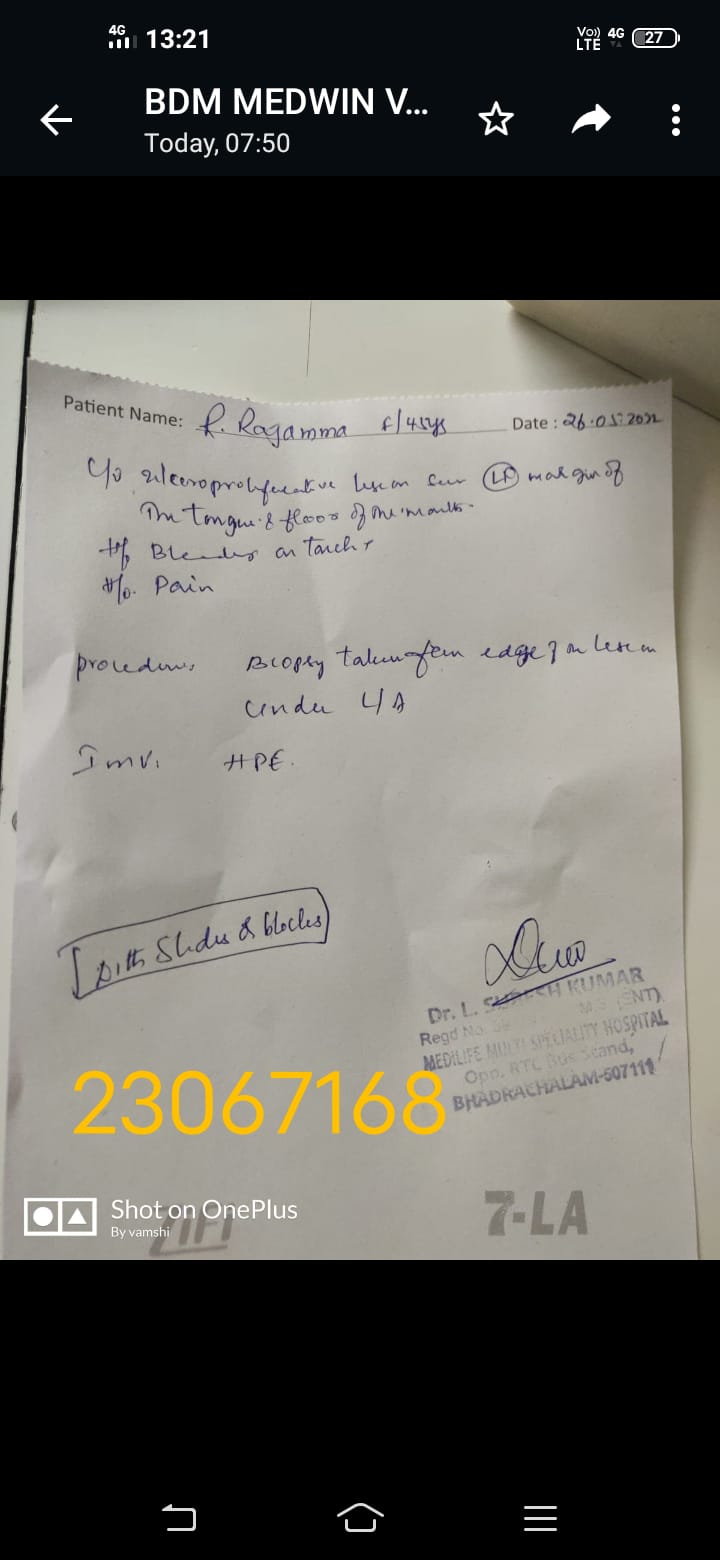 4G 13:21 Vo)) LTE 4G 27
BDM MEDWIN V...
Today, 07:50
Patient Name: R. Ragamma F/45ys Date : 26.05.2022
C/o ulceroproliferative lesion over (Lt) margin of
The tongue & floor of the mouth.
H/o Bleeding on Touch +
H/o. Pain
procedure: Biopsy taken from edge of the lesion
under L/A
Inv. HPE.
With Slides & blocks
Dr. L. SURESH KUMAR
M.S (ENT)
Regd No.
MEDILIFE MULTI SPECIALITY HOSPITAL
Opp. RTC Bus Stand,
BHADRACHALAM-507111
23067168
Shot on OnePlus
By vamshi
ZIFI
7-LA